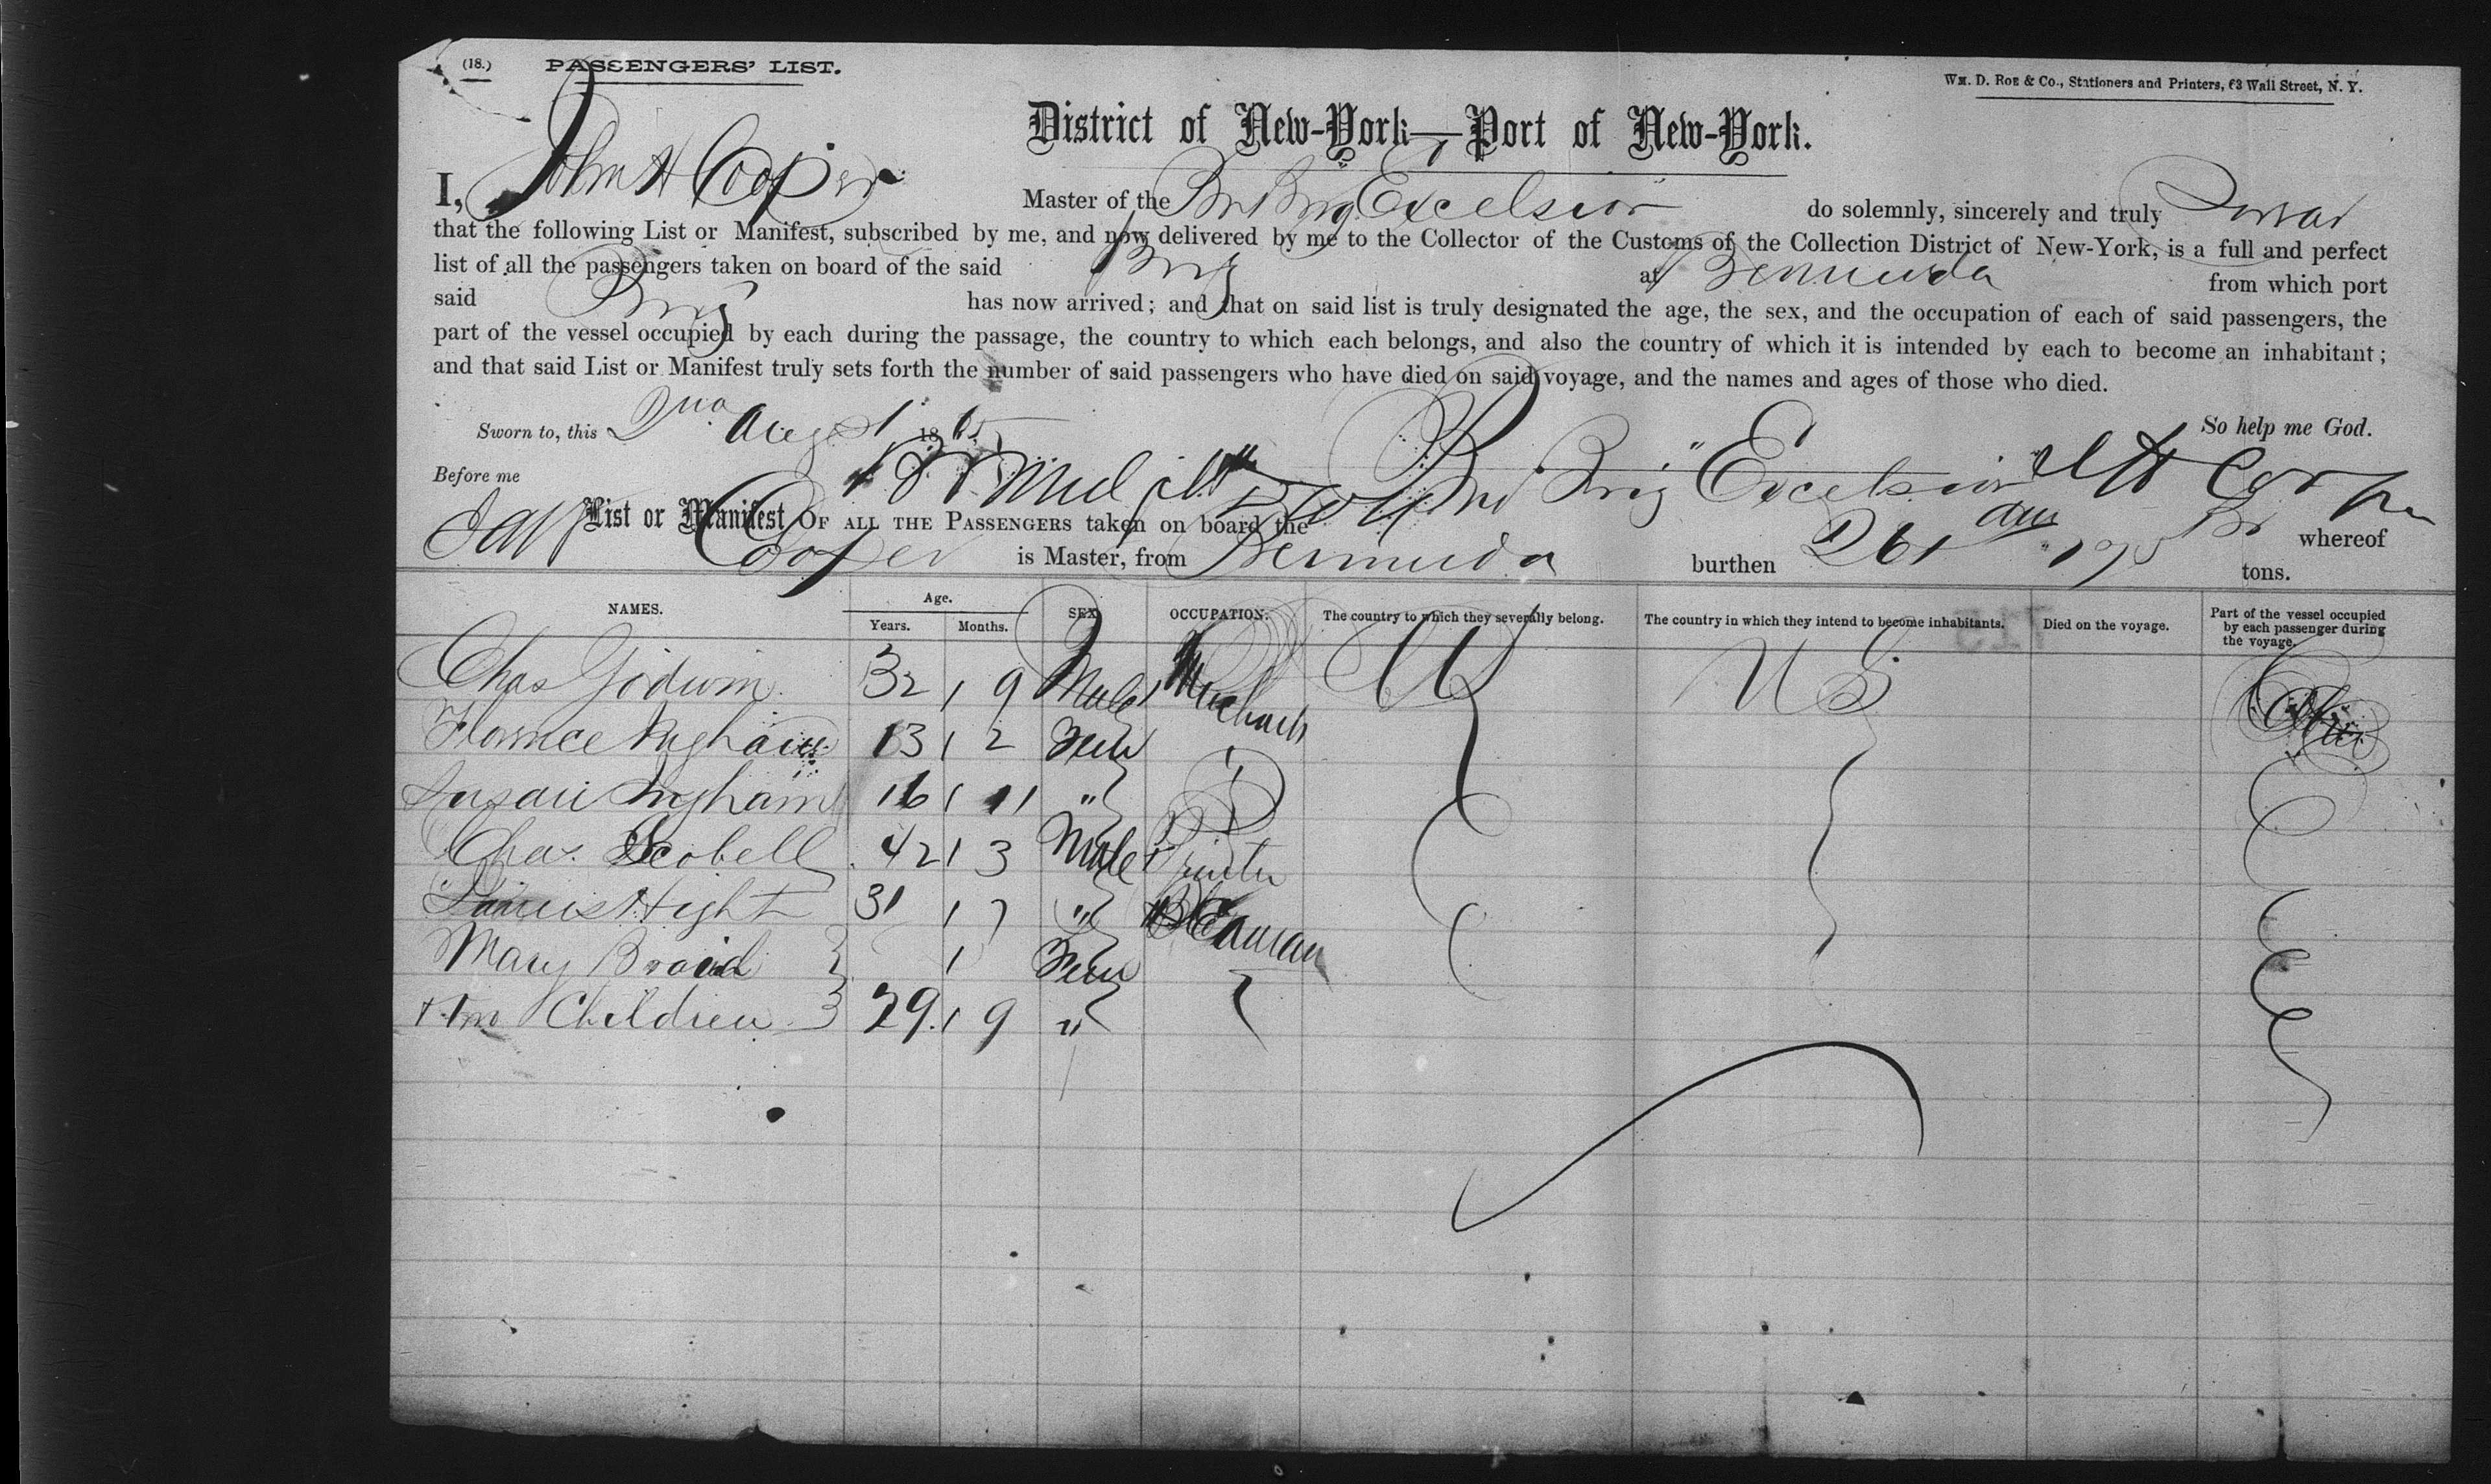 (18.) PASSENGERS' LIST.
WM. D. ROE & CO., Stationers and Printers, 63 Wall Street, N. Y.
District of New-York—Port of New-York.
I, John H Cooper Master of the Br Brig Excelsior do solemnly, sincerely and truly Swear
that the following List or Manifest, subscribed by me, and now delivered by me to the Collector of the Customs of the Collection District of New-York, is a full and perfect
list of all the passengers taken on board of the said Brig at Bermuda from which port
said Brig has now arrived; and that on said list is truly designated the age, the sex, and the occupation of each of said passengers, the
part of the vessel occupied by each during the passage, the country to which each belongs, and also the country of which it is intended by each to become an inhabitant;
and that said List or Manifest truly sets forth the number of said passengers who have died on said voyage, and the names and ages of those who died.
Sworn to, this Aug 1865 So help me God.
Before me J H Cooper
List or Manifest OF ALL THE PASSENGERS taken on board the Br Brig "Excelsior" whereof
Cooper is Master, from Bermuda burthen 261 tons.
NAMES. Age. Years. Months. SEX. OCCUPATION. The country to which they severally belong. The country in which they intend to become inhabitants. Died on the voyage. Part of the vessel occupied by each passenger during the voyage.
Chas Godwin 32 9 Male U S
Florence Ingham 13 2 Fem
Susan Ingham 16 11 "
Chas. Scobell 42 3 Male Printer
Hight 31 7 " Seaman
Mary Braid Fem
Children 29 9 "